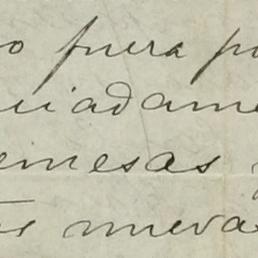 o fuera p
uiadame
emesas y
nueva